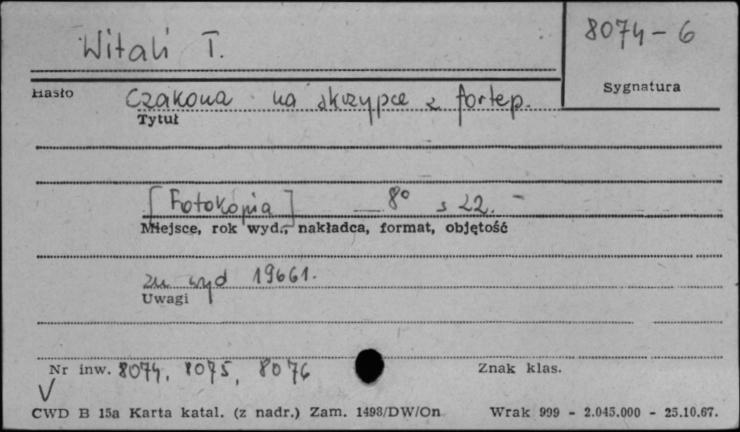 Witali T.
8074-6
Hasło
Sygnatura
Czakona na skrzypce z fortep.
Tytuł
[Fotokopia] 8° s 22. -
Miejsce, rok wyd., nakładca, format, objętość
zu wyd 19661.
Uwagi
Nr inw. 8074, 8075, 8076
Znak klas.
CWD B 15a Karta katal. (z nadr.) Zam. 1498/DW/On Wrak 999 - 2.045.000 - 25.10.67.